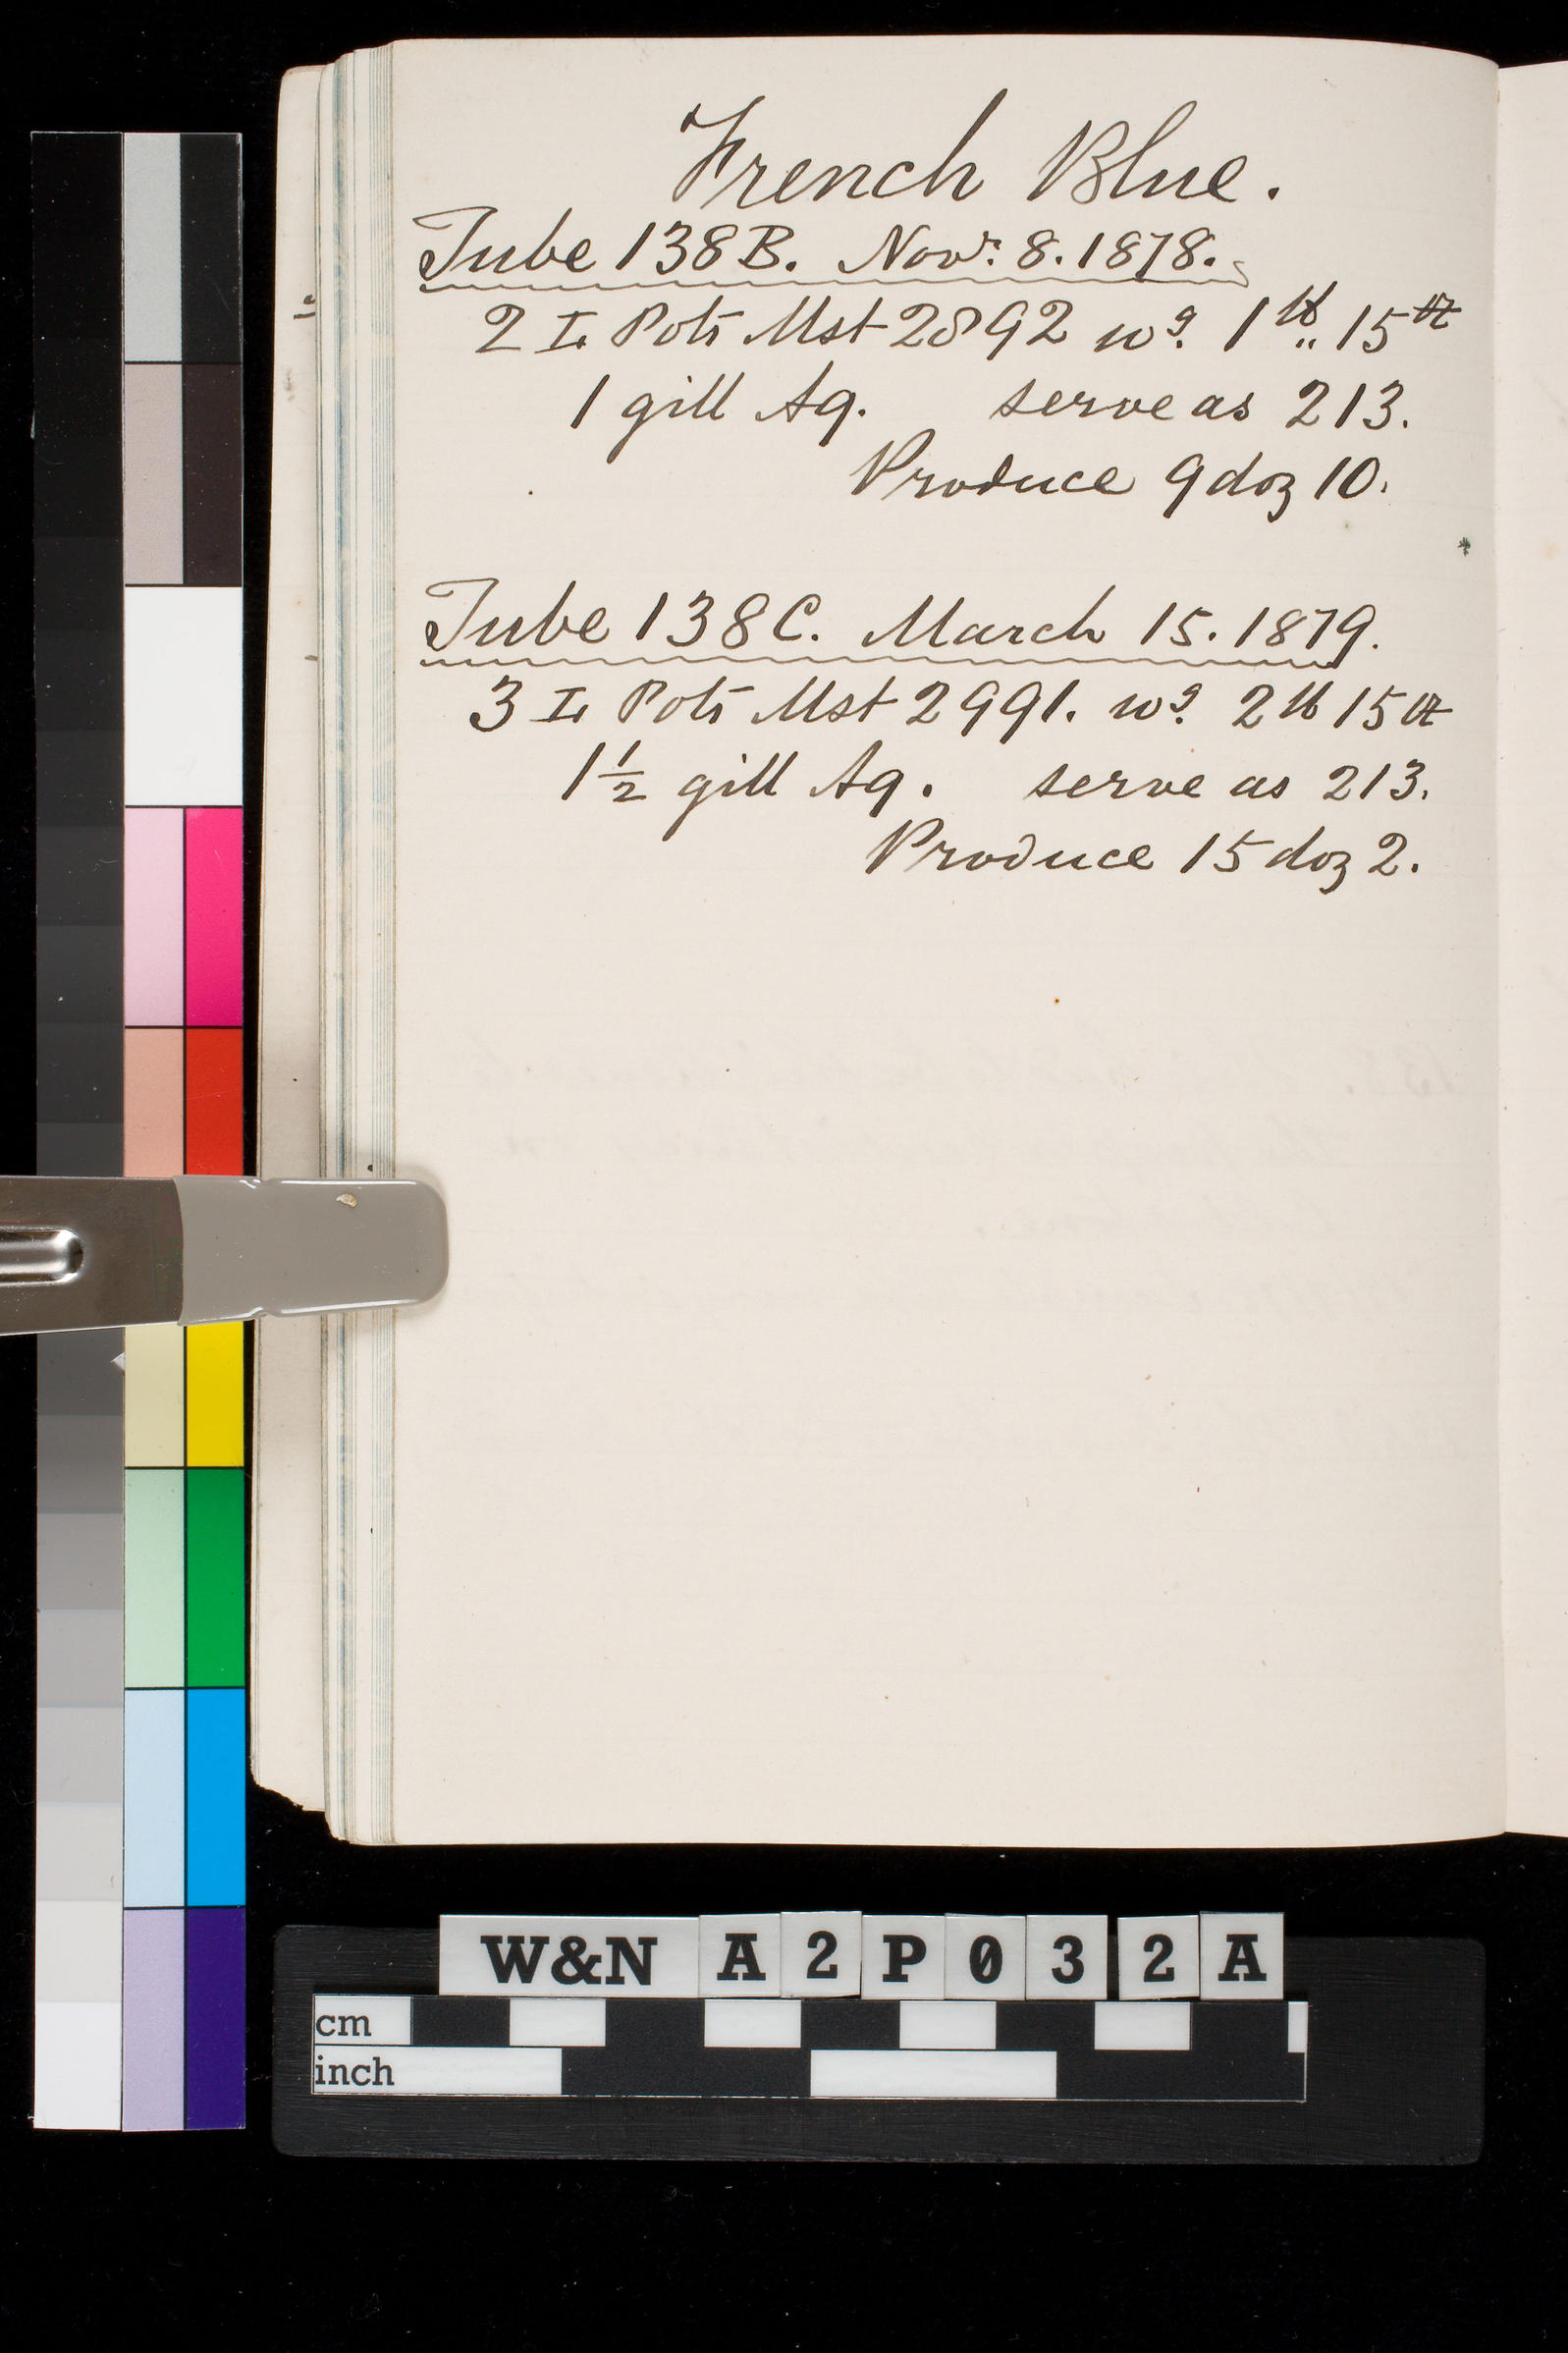 French Blue.
Tube 138B. Novr. 8. 1878.
2 I. Pots Mst 2892 wg. 1 lb „ 15 oz
1 gill Aq. serve as 213.
Produce 9 doz 10.
Tube 138C. March 15. 1879.
3 I. Pots Mst 2991. wg. 2 lb 15 oz
1 1/2 gill Aq. serve as 213.
Produce 15 doz 2.
W&N A2P032A
cm
inch